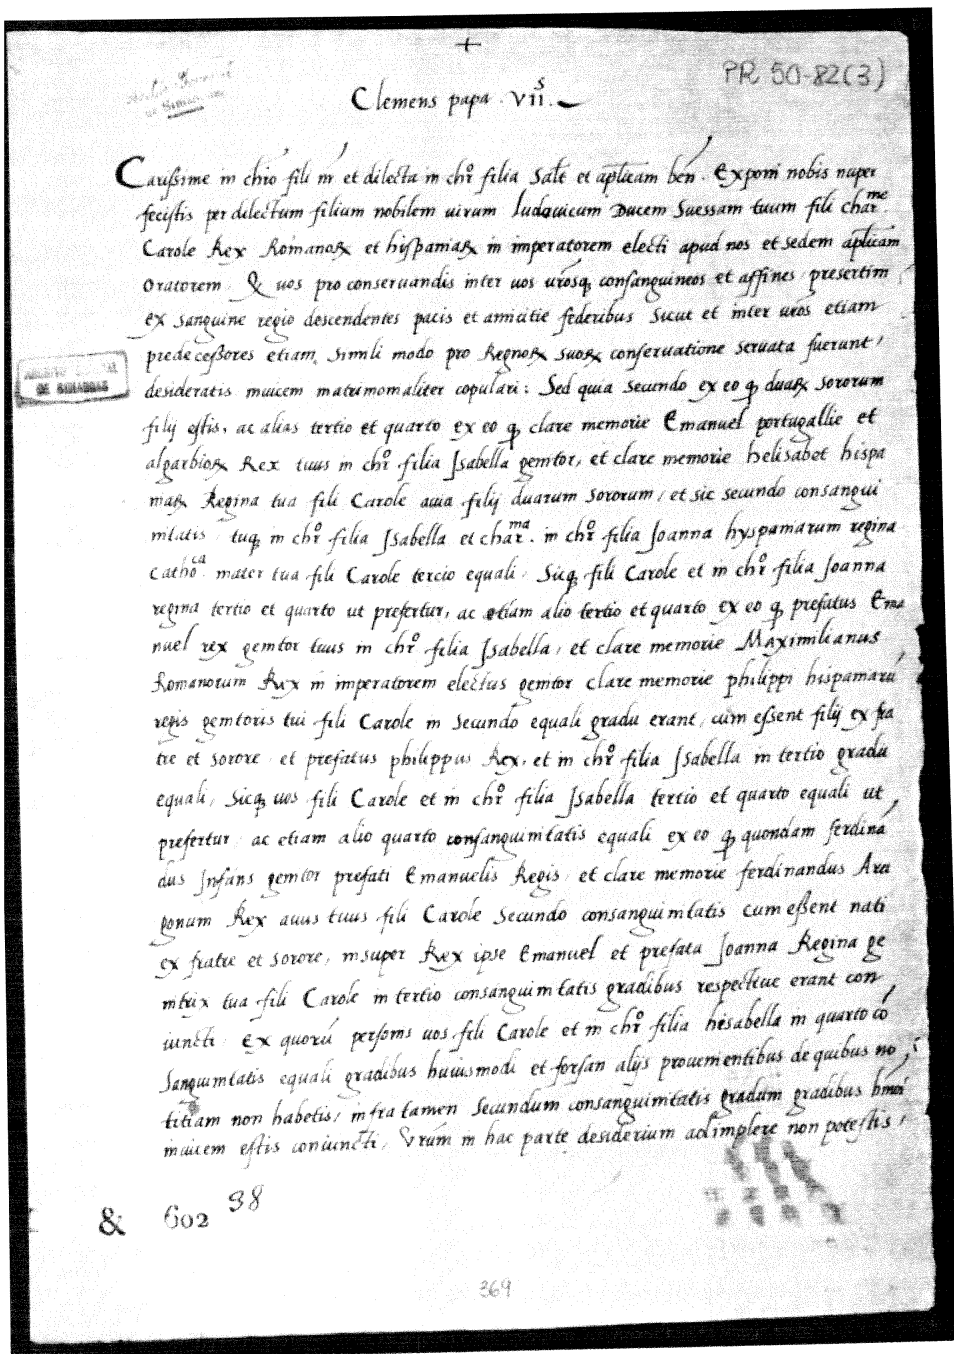 +
PR 50-82(3)
Clemens papa . VIIs.
Carissime in chro fili nr et dilecta in chro filia Salt et aplicam ben . Exponi nobis nuper
fecistis per dilectum filium nobilem uirum Ludouicum Ducem Suessam tuum fili charme.
Carole Rex Romanoꝝ et hispaniaꝝ in imperatorem electi apud nos et sedem aplicam
Oratorem . Q uos pro conseruandis inter uos urosq consanguineos et affines presertim
ex sanguine regio descendentes pacis et amicitie federibus Sicut et inter uros etiam
predecessores etiam simili modo pro Regnoꝝ suoꝝ conseruatione seruata fuerunt,
desideratis inuicem matrimonialiter copulari: Sed quia secundo ex eo q duaꝝ sororum
filij estis, ac alias tertio et quarto ex eo q clare memorie Emanuel portugallie et
algarbioꝝ Rex tuus in chro filia Isabella genitor, et clare memorie helisabet hispa
niaꝝ Regina tua fili Carole auia filij duarum sororum, et sic secundo consangui
nitatis tuq in chro filia Isabella et charma. in chro filia Joanna hyspaniarum regina
Cathoca. mater tua fili Carole tercio equali, Sicq fili Carole et in chro filia Joanna
regina tertio et quarto ut prefertur, ac etiam alio tertio et quarto ex eo q prefatus Ema
nuel rex genitor tuus in chro filia Isabella, et clare memorie Maximilianus
Romanorum Rex in imperatorem electus genitor clare memorie philippi hispaniarū
regis genitoris tui fili Carole in secundo equali gradu erant, cum essent filij ex fra
tre et sorore et prefatus philippus Rex, et in chro filia Isabella in tertio gradu
equali, Sicq uos fili Carole et in chro filia Isabella tertio et quarto equali ut
prefertur ac etiam alio quarto consanguinitatis equali ex eo q quondam ferdinā
dus Infans genitor prefati Emanuelis Regis, et clare memorie ferdinandus Ara
gonum Rex auus tuus fili Carole Secundo consanguinitatis cum essent nati
ex fratre et sorore, insuper Rex ipse Emanuel et prefata Joanna Regina ge
nitrix tua fili Carole in tertio consanguinitatis gradibus respectiue erant con
iuncti . Ex quorū personis uos fili Carole et in chro filia hisabella in quarto cō
sanguinitatis equali gradibus huiusmodi et forsan alijs prouenientibus de quibus no
titiam non habetis, infra tamen Secundum consanguinitatis gradum gradibus hmoi
inuicem estis coniuncti, Vrum in hac parte desiderium adimplere non potestis,
& 602 38
369